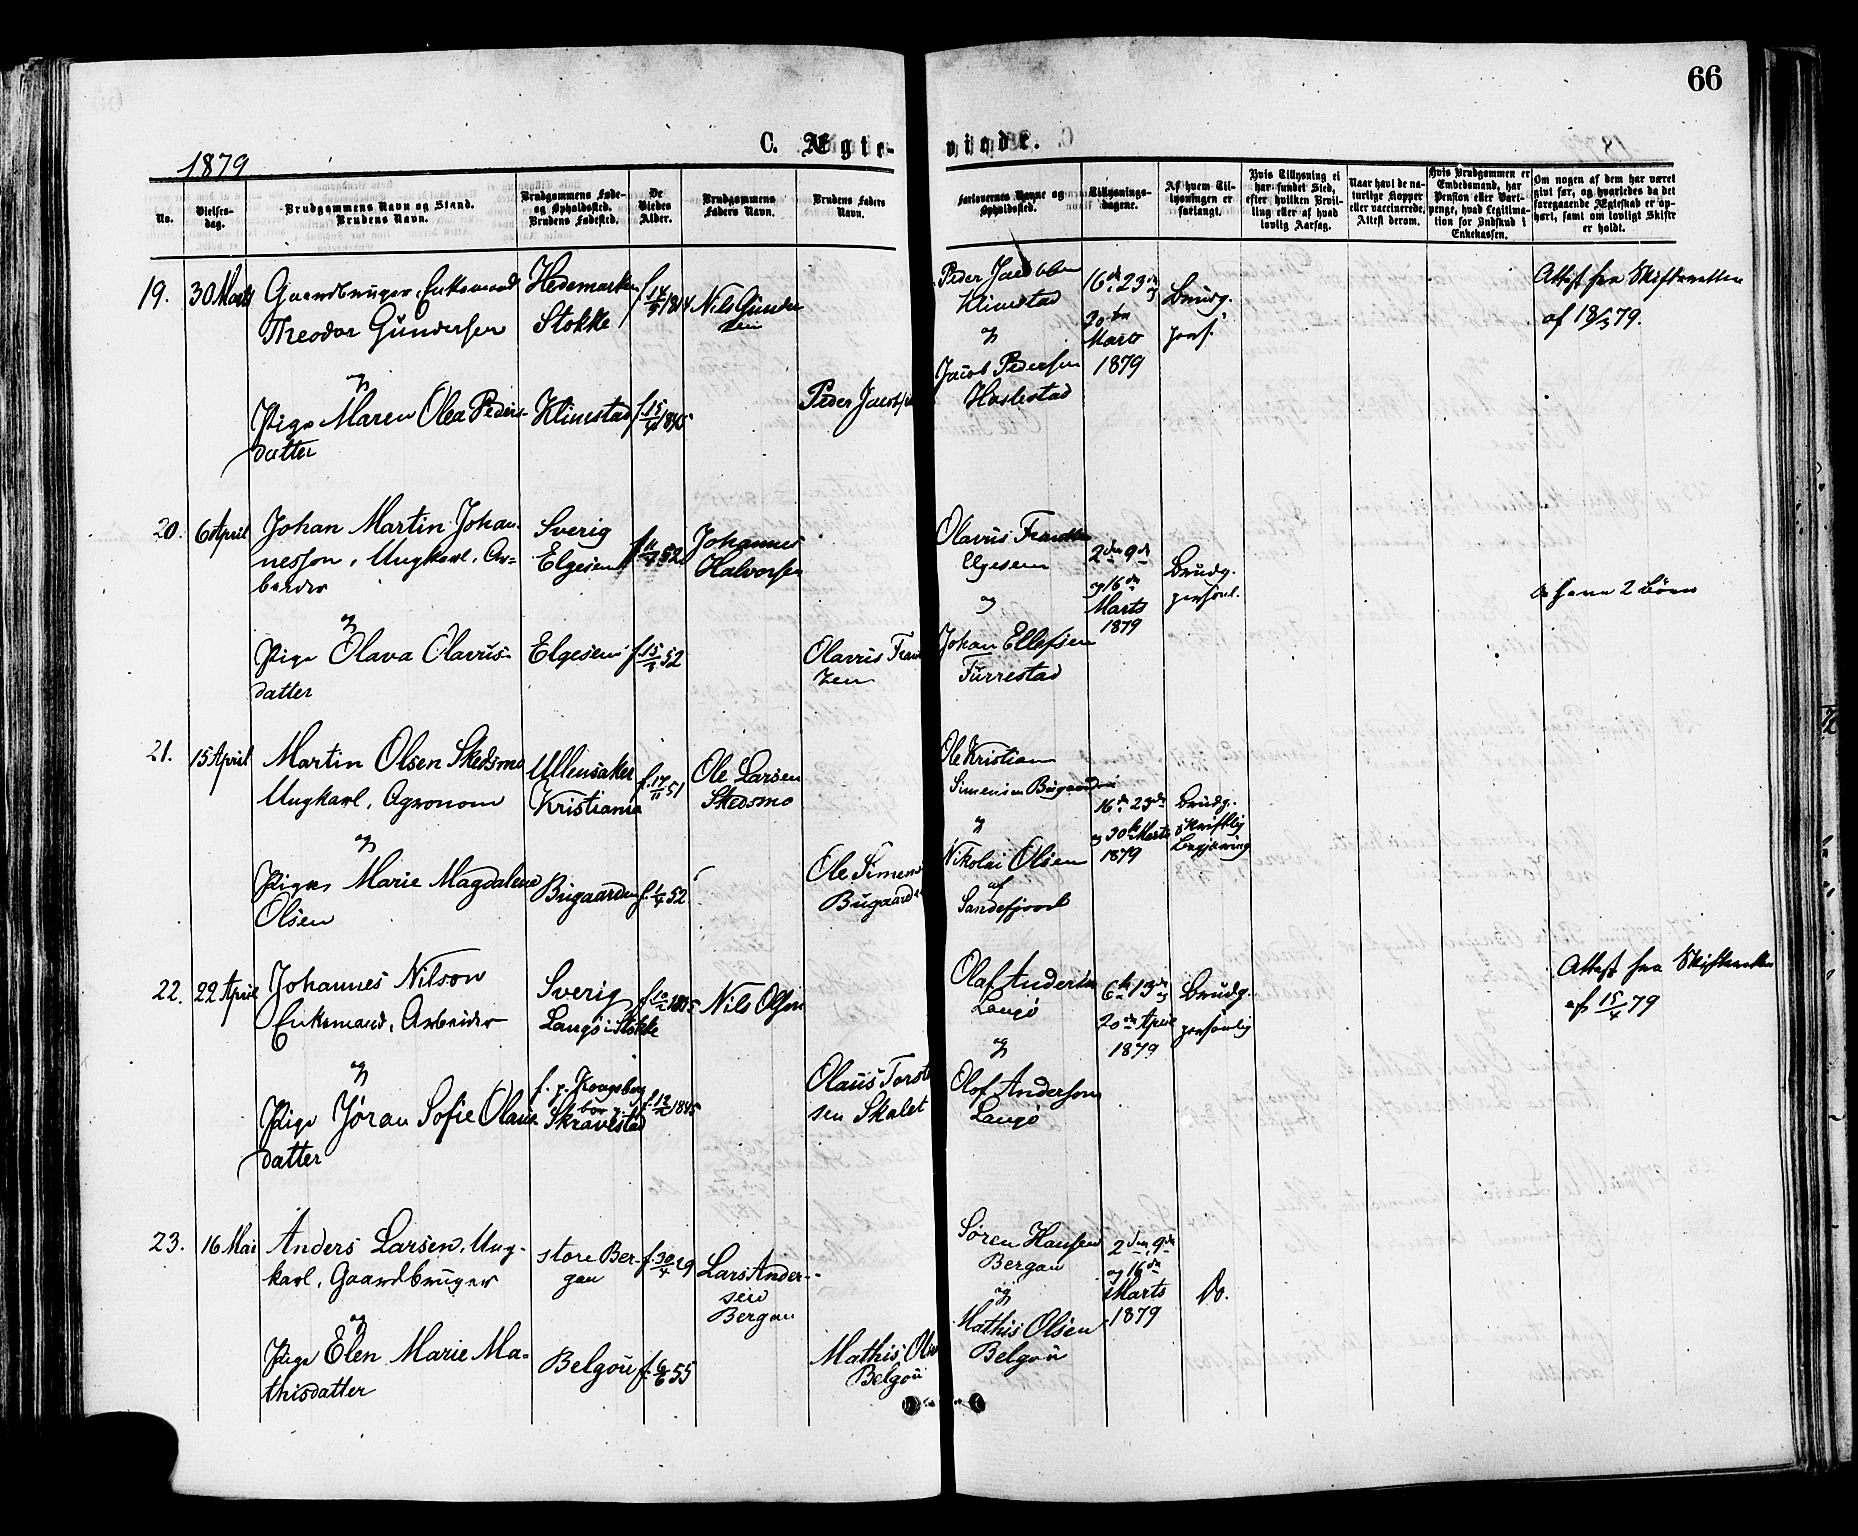 66
C. Ægte-viede.
1879
No.
Vielses-dag.
Brudgommens Navn og Stand.
Brudens Navn.
Brudgommens Føde- og Opholdssted.
Brudens Fødested.
De Viedes Alder.
Brudgommens Faders Navn.
Brudens Faders Navn.
Forlovernes Navne og Opholdssted.
Tillysnings-dagene.
Af hvem Til-lysningen er forlangt.
Hvis Tillysning ei har fundet Sted, efter hvilken Bevil-ling eller af hvad lovlig Aarsag.
Naar havt de na-turlige Kopper eller vaccinerede, Attest derom.
Hvis Brudgommen er Embedsmand, har Pension eller Vart-penge, hvad Legitima-tion for Indskud i Enkekassen.
Om nogen af dem har været gift før, og hvorledes da det foregaaende Ægteskab er op-hørt, samt om lovligt Skifte er holdt.
19.
30 Marts
Gaardbruger, Enkemand
Theodor Gundersen
og
Pige Maren Olea Peders-
datter
Hedemarken
Stokke
Klimestad
Nils Gunder
sen
Peder Jacobsen
Peder Jacobsen
Klimestad
og
Jacob Pedersen
Haslestad
16de 23de
og
30te
Marts
1879
Brudg.
pers.
Attest fra Skifteretten
af 18/3 79.
20.
6 April
Johan Martin Johan-
nesson, Ungkarl, Ar-
beider
og
Pige Olava Olavus-
datter
Sverig
Elgesem
Elgesem
f. 15/8 52
Johannes
Halvorsen
Olavus Fran
zen
Olavus Frandzen
Elgesem
og
Johan Ellefsen
Furrestad
2den 9de
og 16de
Marts
1879
Brudg.
personl.
De have 2 Børn
21.
15 April
Martin Olsen Skedsmo
Ungkarl, Agronom
og
Pigen Marie Magdalene
Olsen
Ullensaker
Kristiania
Bugaarden
f. 17/11 51
f. 1/4 52
Ole Larsen
Skedsmo
Ole Simens
Bugaarden
Ole Kristian
Simensen Bugaarden
og
Nikolai Olsen
af
Sandefjord
16de 23de
og 30te Marts
1879
Brudg.
skriftlig
Begjæring
22.
22 April
Johannes Nilson
Enkemand, Arbeider
og
Pige Jøran Sofie Olaus-
datter
Sverig
Langø i Stokke
f. p. Kongsberg
bor p.
Skravestad
f. 12/2 1845
Nils Olsen
Olaus Torst
sen Skalet
Olaf Anderson
Langø
og
Olof Anderson
Langø
6te 13de
og
20de April
1879
Brudg.
personlig
Attest fra Skifteretten
af 15/4 79
23.
16 Mai
Anders Larsen, Ung-
karl, Gaardbruger
og
Pige Elen Marie Ma-
thisdatter
store Ber-
gan
Belgau
f. 30/4 29
f. 6/6 55
Lars Ander-
sen
Bergan
Mathis Olsen
Belgau
Søren Hansen
Bergan
og
Mathis Olsen
Belgau
2den, 9de
og 16de
Marts
1879
Do.